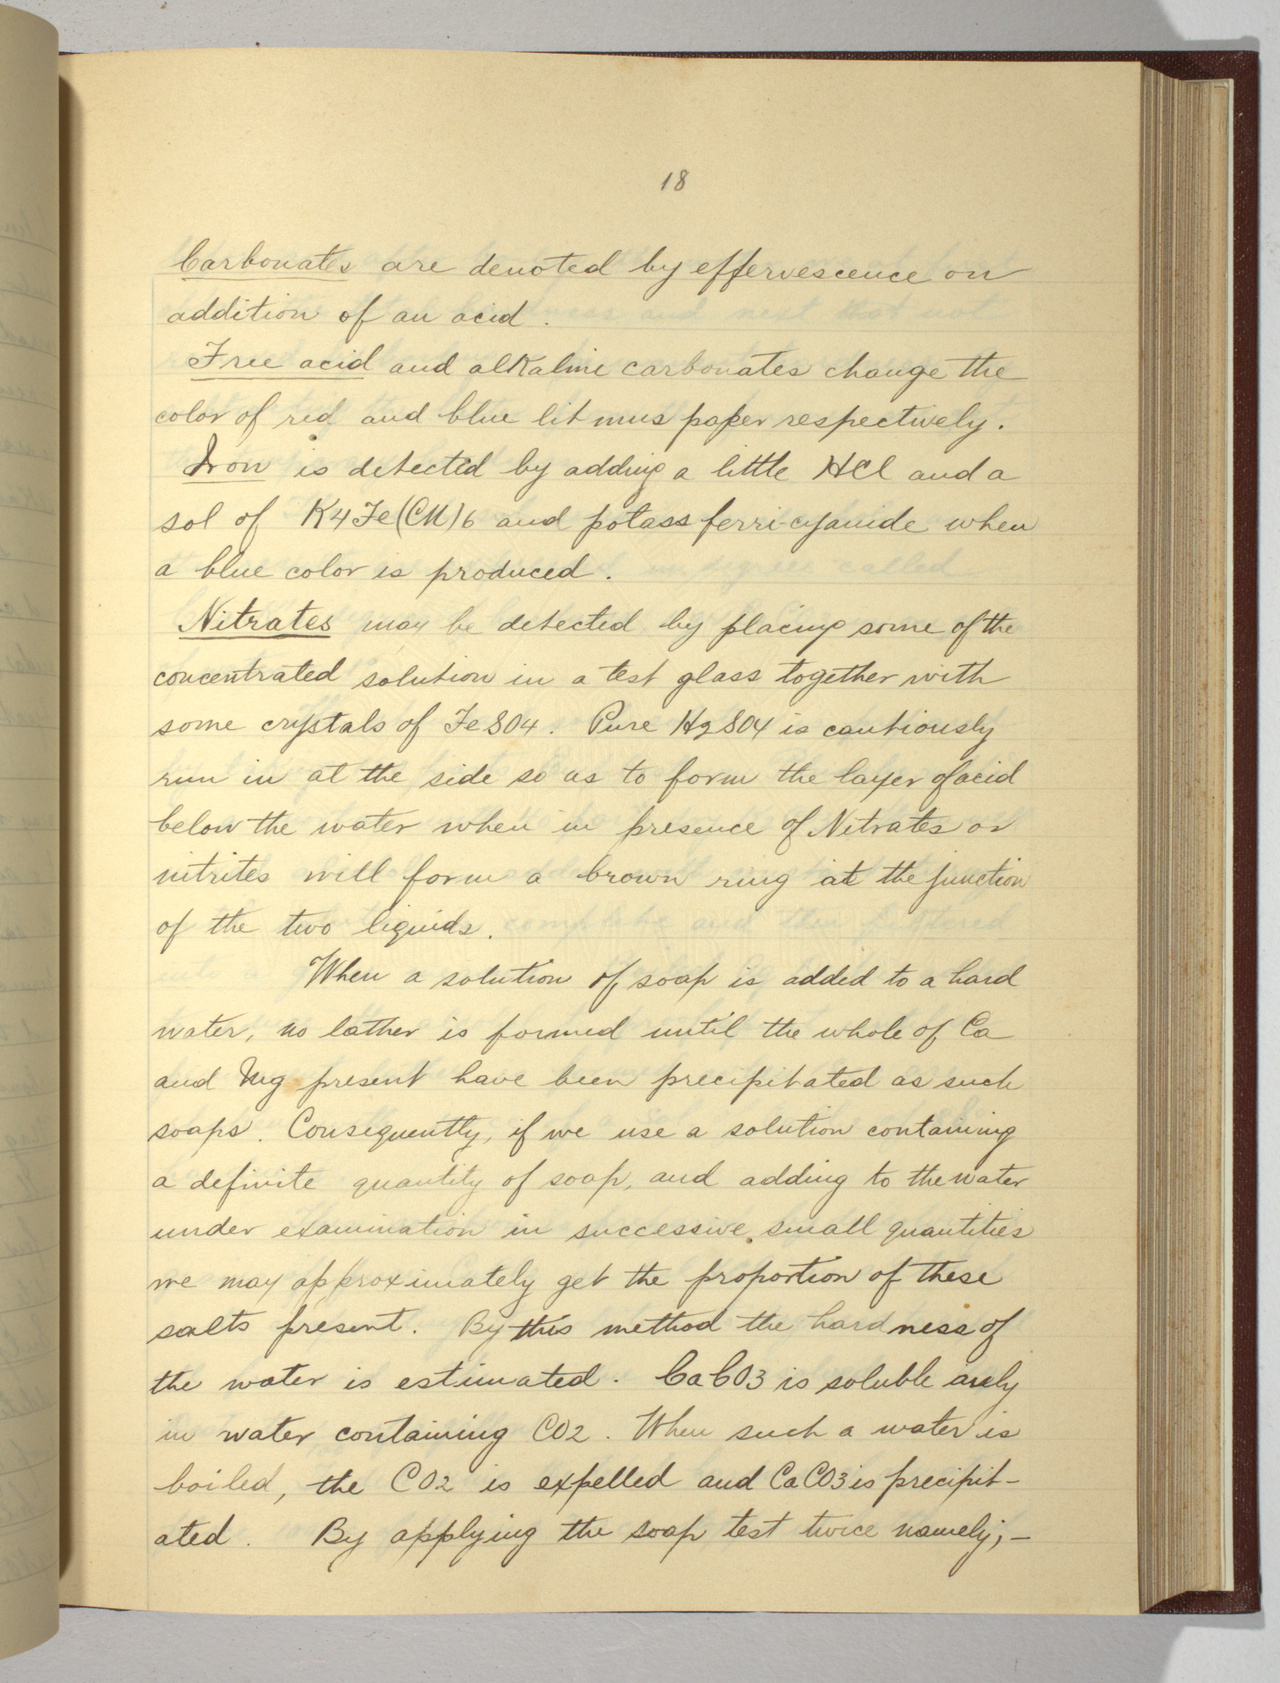 18
Carbonates are denoted by effervescence on
addition of an acid.
Free acid and alkaline carbonates change the
color of red and blue litmus paper respectively.
Iron is detected by adding a little HCl and a
sol of K4Fe(CN)6 and potass ferri-cyanide when
a blue color is produced.
Nitrates may be detected by placing some of the
concentrated solution in a test glass together with
some crystals of FeSO4. Pure H2SO4 is cautiously
run in at the side so as to form the layer of acid
below the water when in presence of Nitrates or
nitrites will form a brown ring at the junction
of the two liquids.
When a solution of soap is added to a hard
water, no lather is formed until the whole of Ca
and Mg present have been precipitated as such
soaps. Consequently, if we use a solution containing
a definite quantity of soap, and adding to the water
under examination in successive small quantities
we may approximately get the proportion of these
salts present. By this method the hardness of
the water is estimated. CaCO3 is soluble
in water containing CO2. When such a water is
boiled, the CO2 is expelled and CaCO3 is precipit-
ated. By applying the soap test twice namely;—